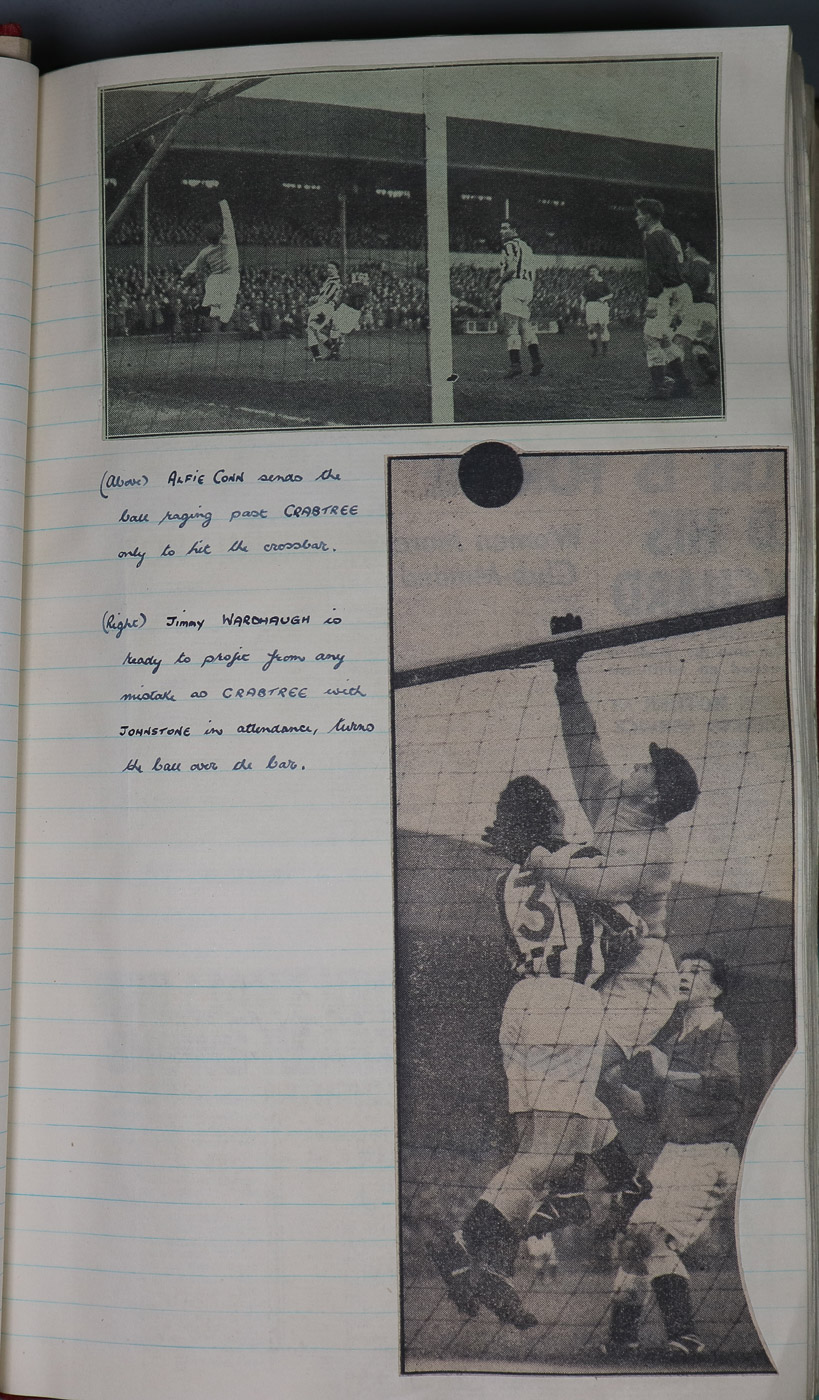 (Above) ALFIE CONN sends the
ball raging past CRABTREE
only to hit the crossbar.
(Right) Jimmy WARDHAUGH is
ready to profit from any
mistake as CRABTREE with
JOHNSTONE in attendance, turns
the ball over the bar.
3